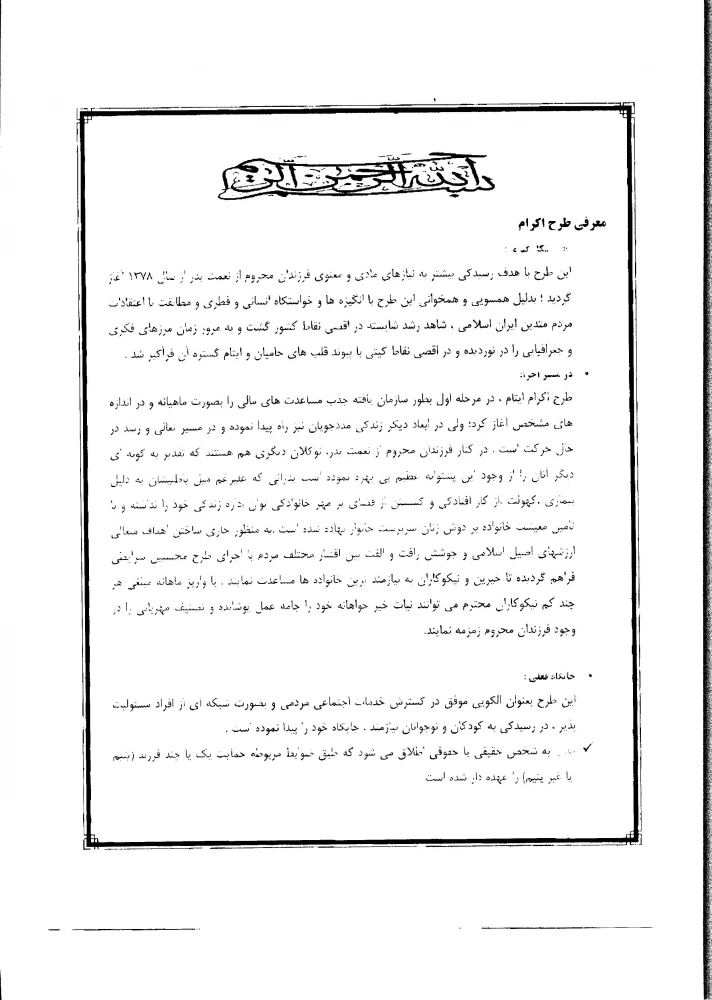 بسم الله الرحمن الرحیم
معرفی طرح اکرام
این طرح با هدف رسیدگی بیشتر به نیازهای مادی و معنوی فرزندان محروم از نعمت پدر از سال ۱۳۷۸ آغاز
گردید ؛ بدلیل همسویی و همخوانی این طرح با انگیزه ها و خواستگاه انسانی و فطری و مطابقت با اعتقادات
مردم متدین ایران اسلامی ، شاهد رشد شایسته در اقصی نقاط کشور گشت و به مرور زمان مرزهای فکری
و جغرافیایی را در نوردیده و در اقصی نقاط گیتی با پیوند قلب های حامیان و ایتام گستره آن فراگیر شد .
• در مسیر اجرا:
طرح اکرام ایتام ، در مرحله اول بطور سازمان یافته جذب مساعدت های مالی را بصورت ماهیانه و در اندازه
های مشخص آغاز کرد؛ ولی در ابعاد دیگر زندگی مددجویان نیز راه پیدا نموده و در مسیر تعالی و رشد در
حال حرکت است . در کنار فرزندان محروم از نعمت پدر، نوگلان دیگری هم هستند که تقدیر به گونه ای
دیگر آنان را از وجود این پشتوانه عظیم بی بهره نموده است پدرانی که علیرغم میل باطنیشان به دلیل
بیماری ،کهولت ،از کار افتادگی و گسستن از فضای پر مهر خانوادگی توان اداره زندگی خود را نداشته و با
تامین معیشت خانواده بر دوش زنان سرپرست خانوار نهاده شده است .به منظور جاری ساختن اهداف متعالی
ارزشهای اصیل اسلامی و جوشش رافت و الفت بین اقشار مختلف مردم با اجرای طرح محسنین شرایطی
فراهم گردیده تا خیرین و نیکوکاران به نیازمند ترین خانواده ها مساعدت نمایند . با واریز ماهانه مبلغی هر
چند کم نیکوکاران محترم می توانند نیات خیر خواهانه خود را جامه عمل پوشانده و تصنیف مهربانی را در
وجود فرزندان محروم زمزمه نمایند.
• جایگاه فعلی :
این طرح بعنوان الگویی موفق در گسترش خدمات اجتماعی مردمی و بصورت شبکه ای از افراد مسئولیت
پذیر ، در رسیدگی به کودکان و نوجوانان نیازمند ، جایگاه خود را پیدا نموده است .
✓ به شخص حقیقی یا حقوقی اطلاق می شود که طبق ضوابط مربوطه حمایت یک یا چند فرزند (یتیم
یا غیر یتیم) را عهده دار شده است